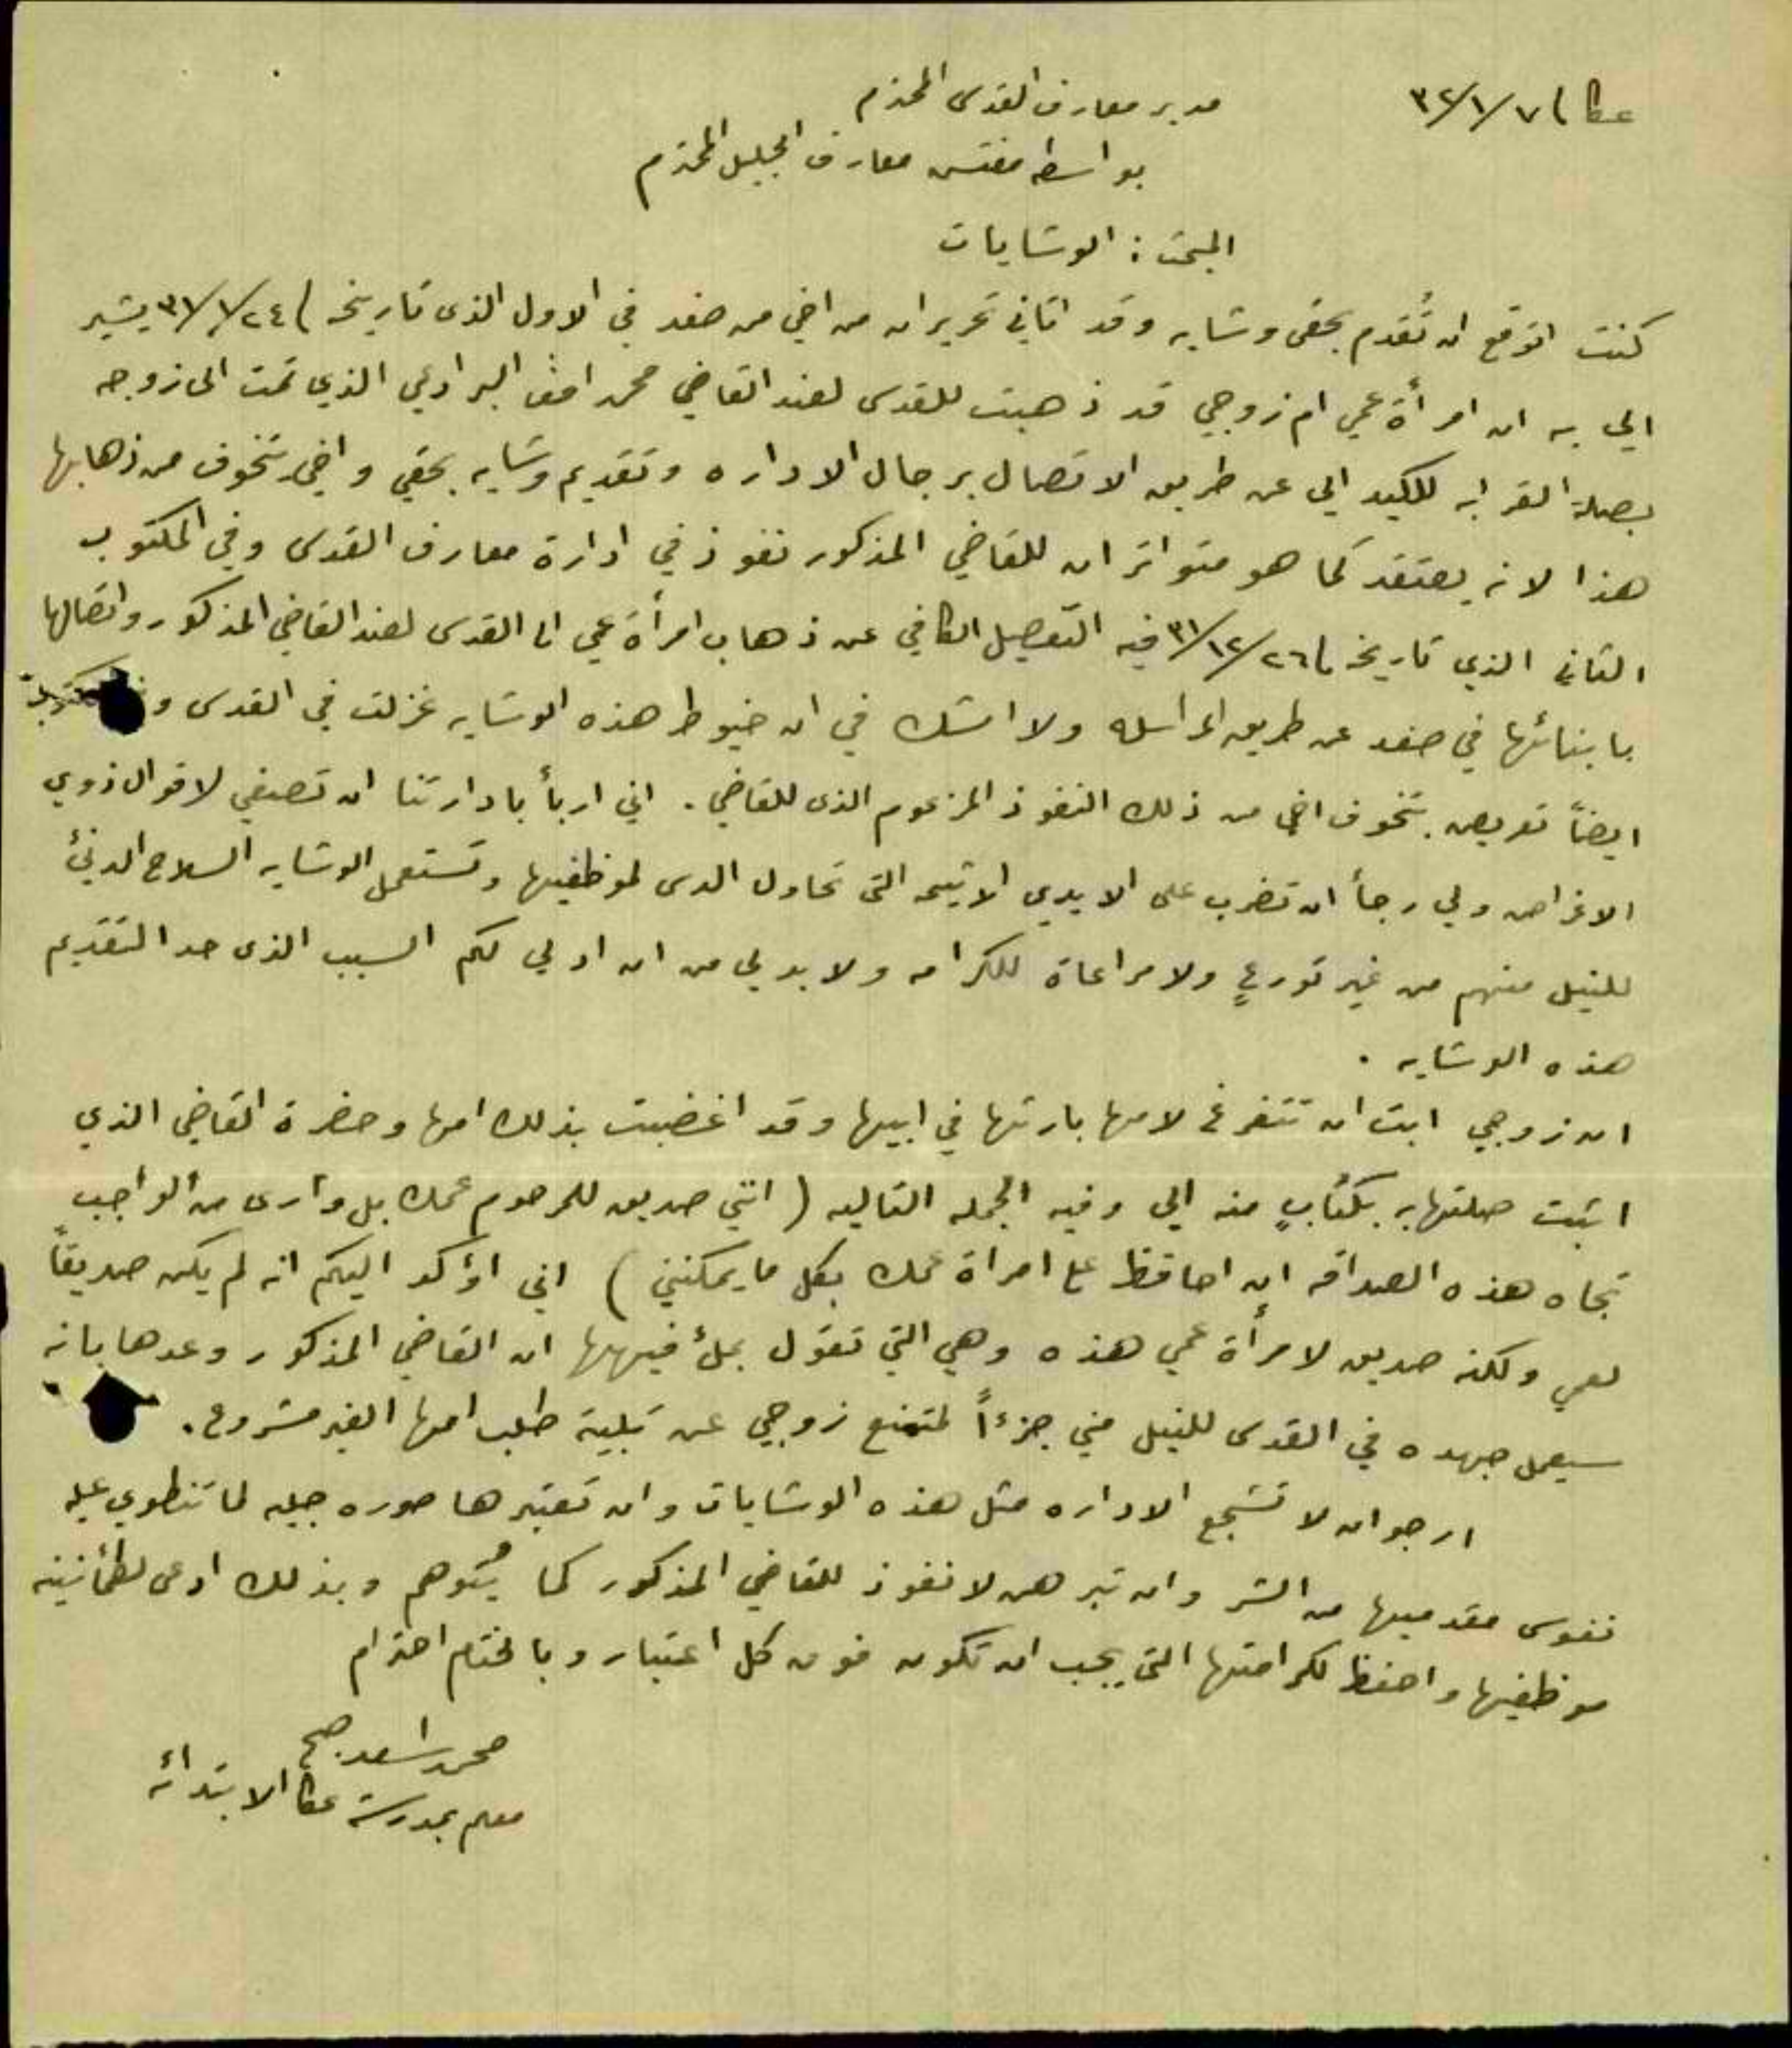 عكا ٣٢/١/٧
مدير معارف القدس المحترم
بواسطة مفتش معارف الجليل المحترم
المبحث: الوشايات
كنت اتوقع ان تُقدم بحقي وشايه وقد اتاني تحريران من اخي من صفد في الاول الذي تاريخه يشير
الي به ان امرأة عمي ام زوجي قد ذهبت للقدس لعند القاضي محمد البرادعي الذي تمت الى زوجه
بصلة القرابه للكيد الي عن طريق الاتصال برجال الاداره وتقديم وشايه بحقي واخي يتخوف من ذهابها
هذا لانه يعتقد كما هو متواتر ان للقاضي المذكور نفوذ في ادارة معارف القدس وفي المكتوب
الثاني الذي تاريخه ٣١/١٢/٢٦ فيه التفصيل الكافي عن ذهاب امرأة عمي الى القدس لعند القاضي المذكور واتصالها
بابنائها في صفد عن طريق المراسله ولا اشك في ان خيوط هذه الوشايه غزلت في القدس
ايضاً تعريض بتخوف اخي من ذلك النفوذ المزعوم الذي للقاضي. اني اربأ بادارتنا ان تصغي لاقوال ذوي
الاغراض ولي رجأ ان تضرب على الايدي الاثيمه التي تحاول الدس لموظفيها وتستعمل الوشايه السلاح الدنئ
للنيل منهم من غير تورعٍ ولا مراعاة للكرامه ولا بد لي من ان ادلي لكم السبب الذي حدا لتقديم
هذه الوشايه.
ان زوجي ابت ان تتفرغ لامها بارثها في ابيها وقد اغضبت بذلك امها وحضرة القاضي الذي
اثبت صلتها به بكتابٍ منه الي وفيه الجمله التاليه (انني صديق للمرحوم عمك بل وارى من الواجب
تجاه هذه الصداقه ان احافظ على امراة عمك بكل ما يمكنني) اني اؤكد اليكم انه لم يكن صديقاً
لعمي ولكنه صديق لامرأة عمي هذه وهي التي تقول بملئ فيهها ان القاضي المذكور وعدها بانه
سيعمل جهده في القدس للنيل مني جزءاً لتمنع زوجي عن تلبية طلب امها الغير مشروع.
ارجو ان لا تشجع الاداره مثل هذه الوشايات وان تعتبرها صوره جليه لما تنطوي عليه
نفوس مقدميها من الشر وان تبرهن لا نفوذ للقاضي المذكور كما يُتوهم وبذلك ادعى لطمأنينة
موظفيها واحفظ لكرامتها التي يجب ان تكون فوق كل اعتبار وبالختام احترام
محمد اسعد
معلم بمدرسة عكا الابتدائه